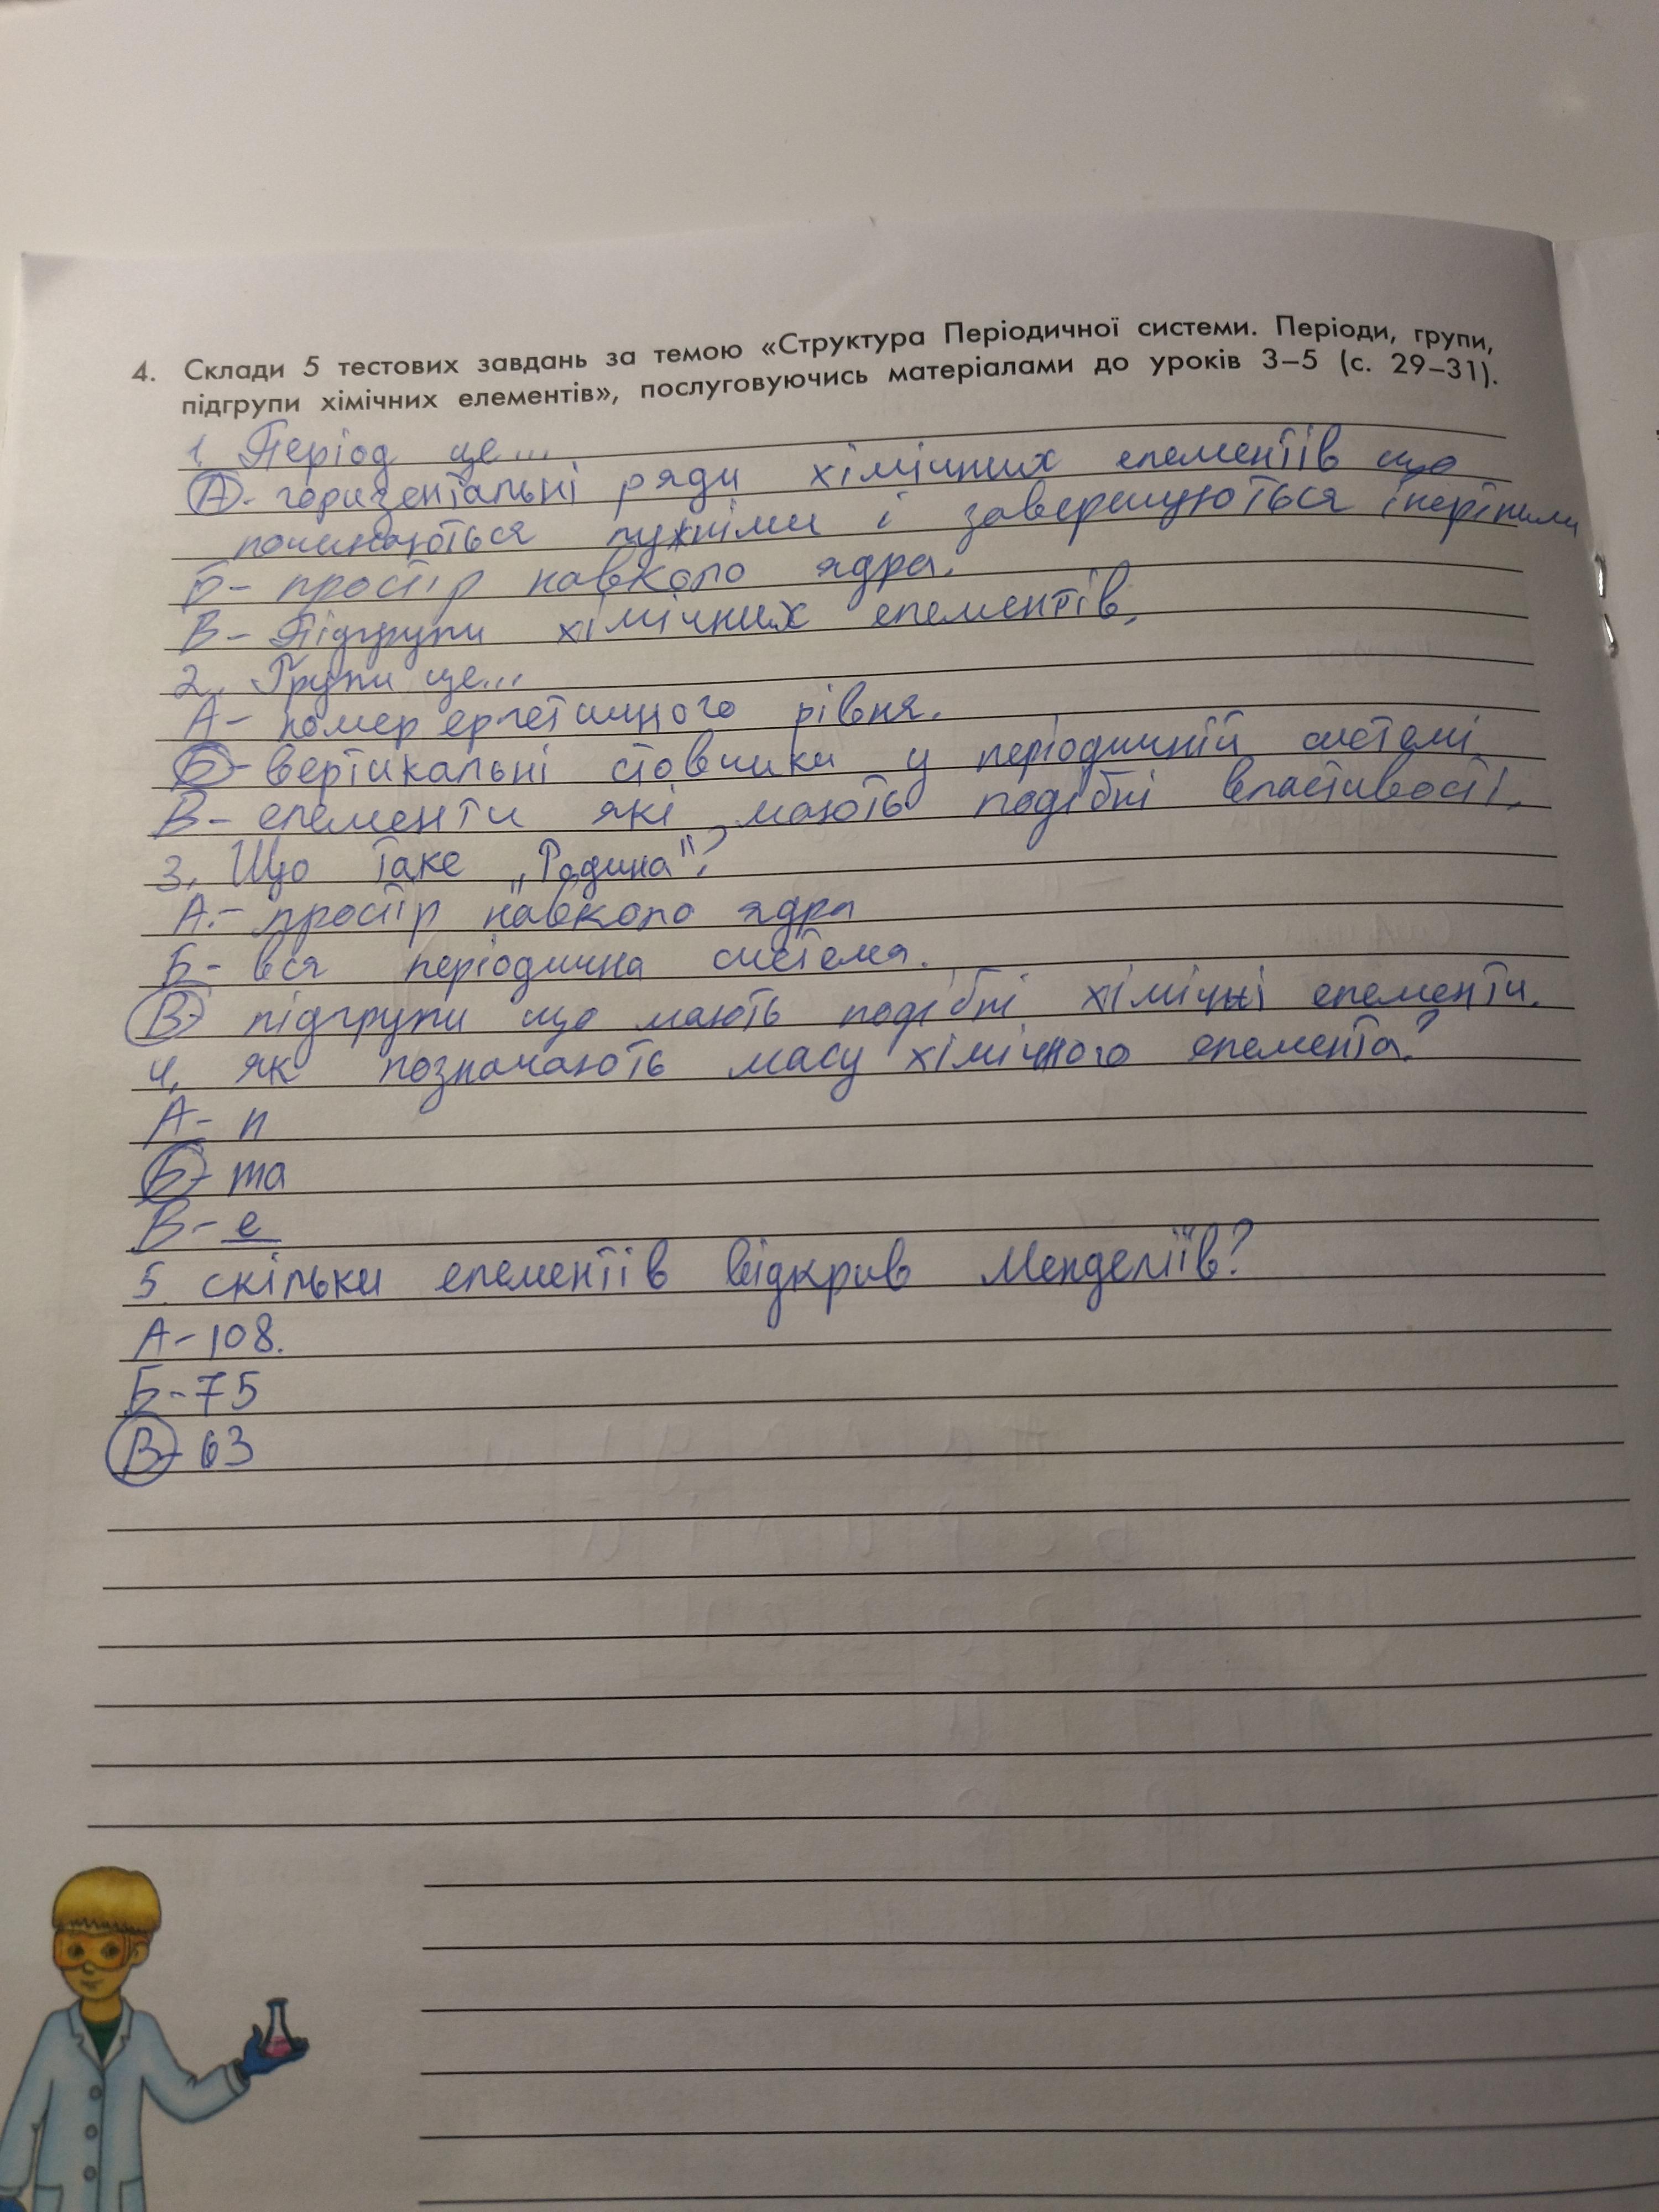 4. Склади 5 тестових завдань за темою «Структура Періодичної системи. Періоди, групи,
підгрупи хімічних елементів», послуговуючись матеріалами до уроків 3–5 (с. 29–31).
1. Період це...
А - горизентальні ряди хімічних елементів що
починаються лужніми і завершуються інертними
Б - простір навколо ядра.
В - Підгрупи хімічних елементів.
2. Групи це...
А - номер ергетичного рівня.
Б - вертикальні стовчики у періодичній системі
В - елементи які мають подібні властивості.
3. Що таке „Родина"?
А. - простір навколо ядра
Б - вся періодична система.
В - підгрупи що мають подібні хімічні елементи.
4. як позначають масу хімічного елемента?
А - n
Б - ma
В - e
5. скільки елементів відкрив Менделіїв?
А - 108.
Б - 75
В - 63